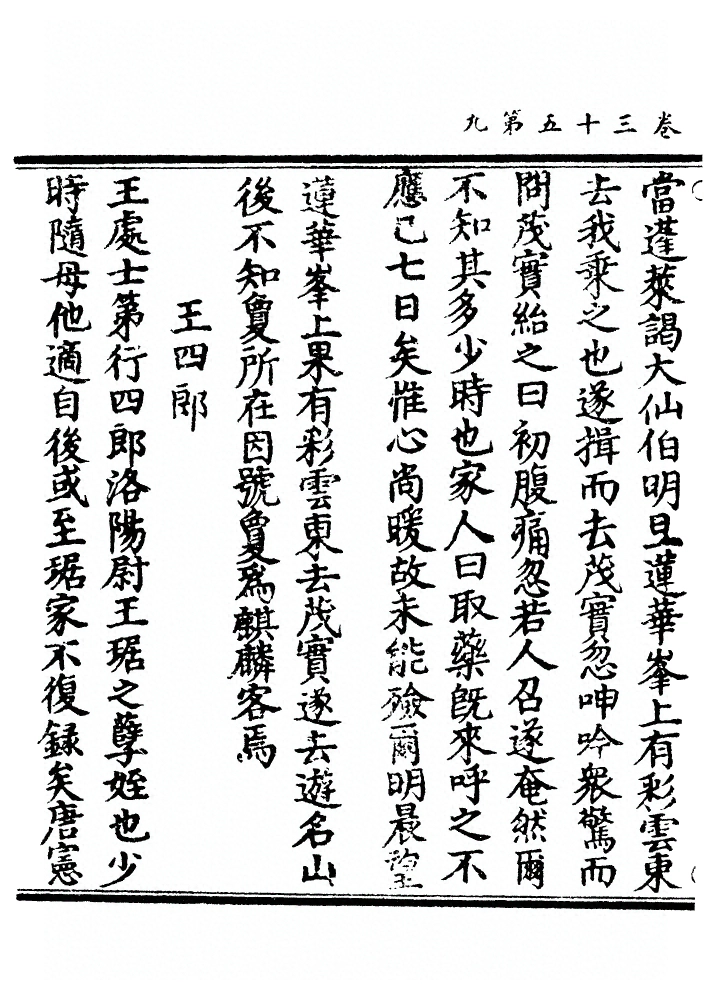 卷三十五第九
當蓬萊謁大仙伯明旦蓮華峯上有彩雲東
去我乘之也遂揖而去茂實忽呻吟衆驚而
問茂實紿之曰初腹痛忽若人召遂奄然爾
不知其多少時也家人曰取藥旣來呼之不
應已七日矣惟心尚暖故未能殮爾明晨望
蓮華峯上果有彩雲東去茂實遂去遊名山
後不知敻所在因號敻爲麒麟客焉
王四郎
王處士第行四郎洛陽尉王琚之孽姪也少
時隨母他適自後或至琚家不復録矣唐憲